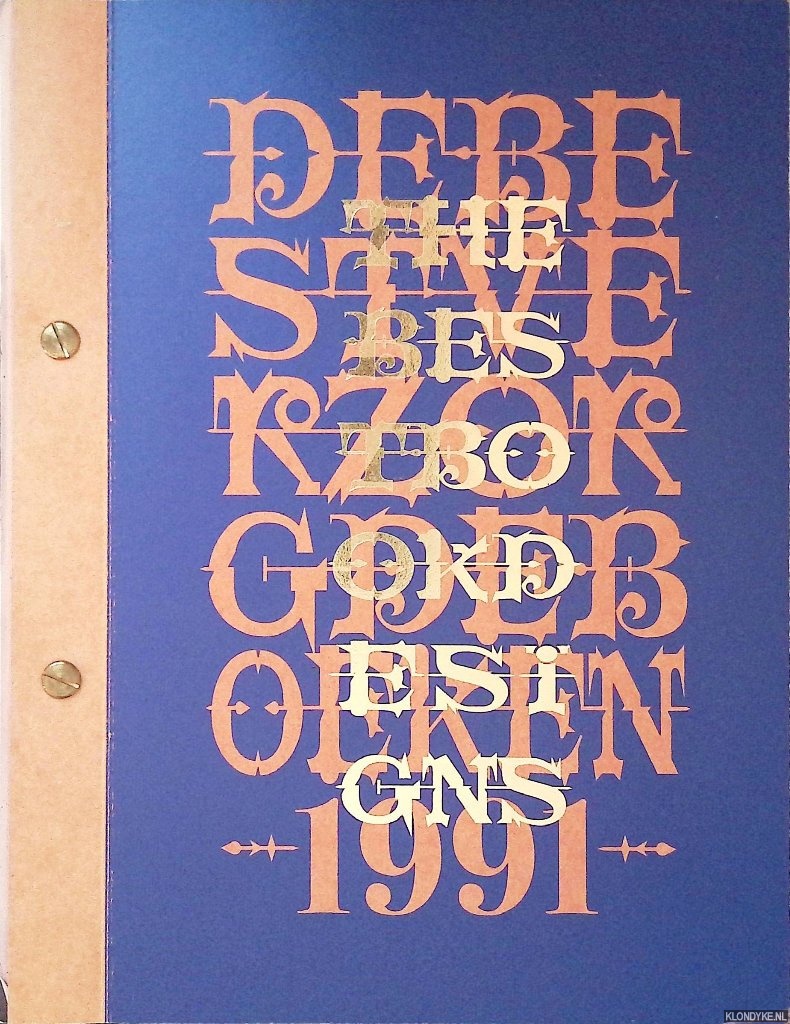 DEBE
STVE
RZOR
GDEB
OEKEN
1991
THE
BES
TBO
OKD
ESÏ
GNS
KLONDYKE.NL